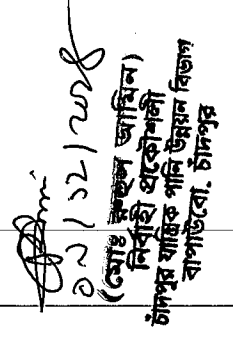 ০১/১২/২০২৪
(মোঃ রুহুল আমিন)
নির্বাহী প্রকৌশলী
চাঁদপুর যান্ত্রিক পানি উন্নয়ন বিভাগ
বাপাউবো, চাঁদপুর